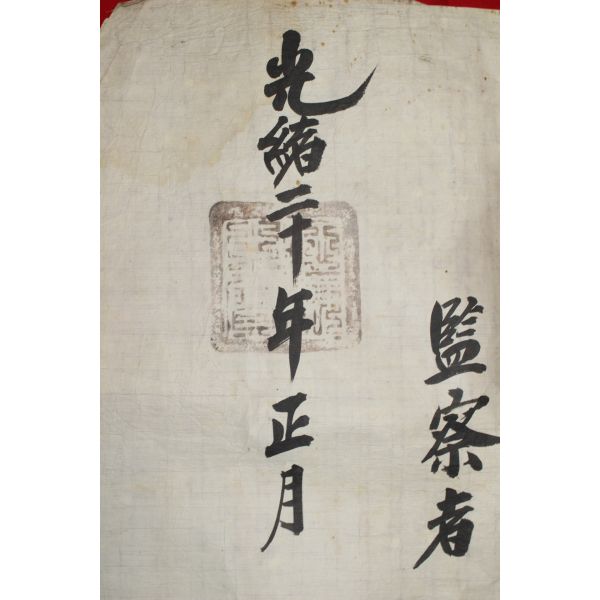 監察者
光緒二十年正月